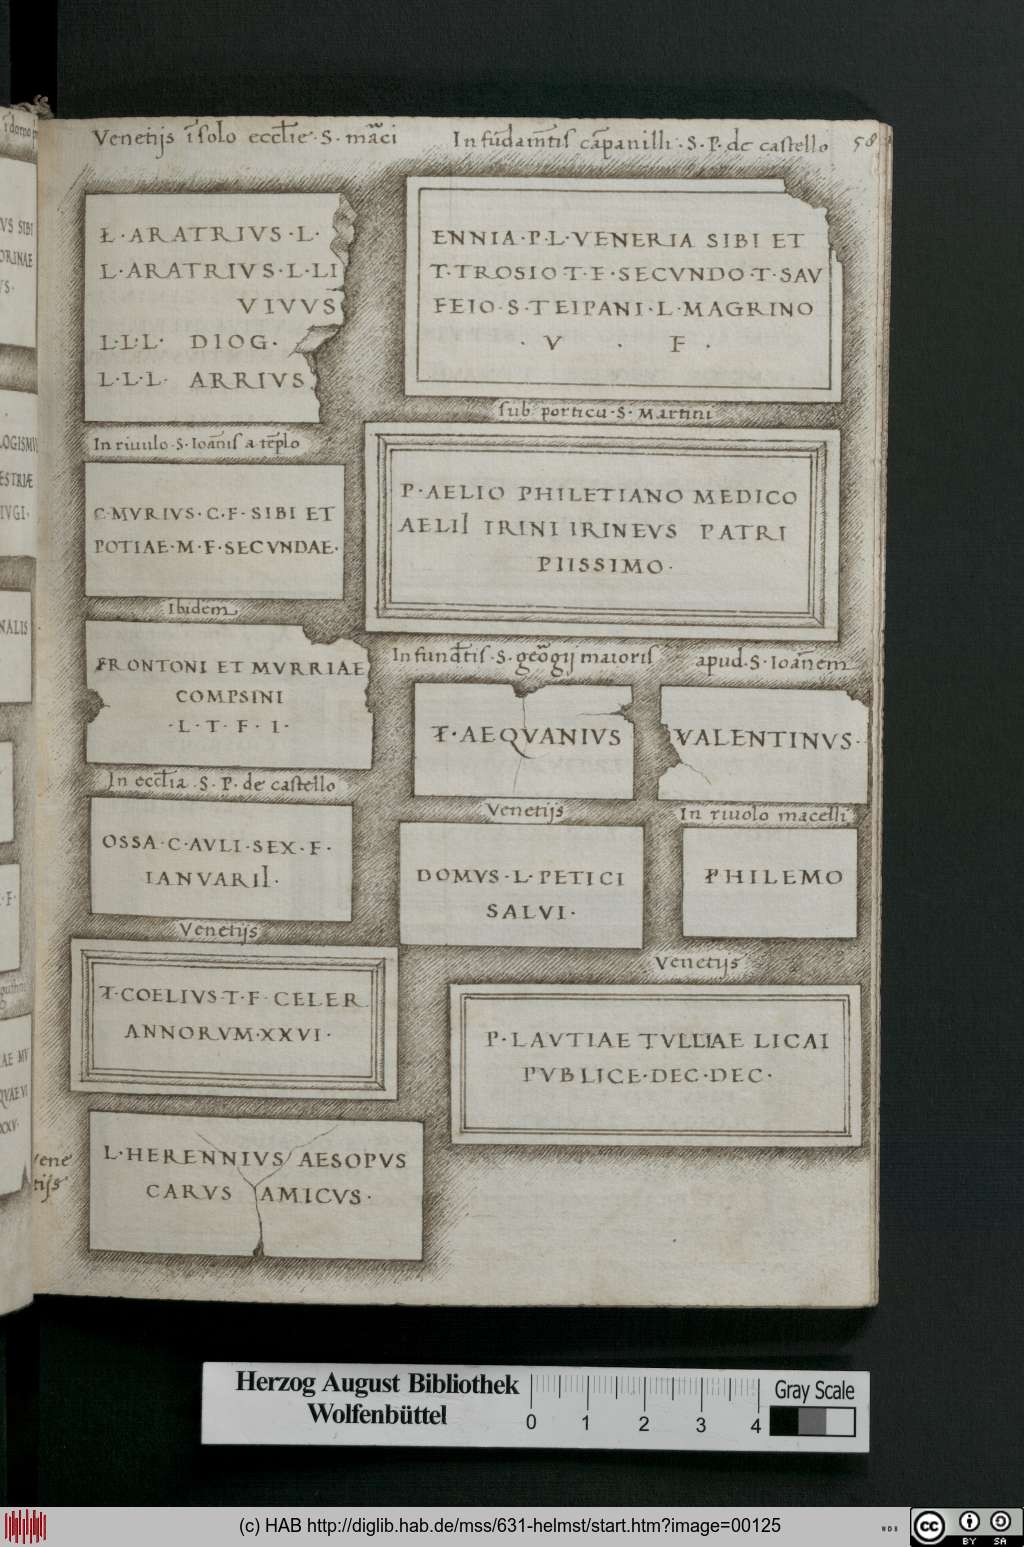 Venetijs ĩ solo eccl̃ie · S · mãci
L · ARATRIVS · L ·
L · ARATRIVS · L · LI
VIVVS
L · L · L · DIOG ·
L · L · L · ARRIVS
In riuulo · S · Ioãnis a tẽplo
C · MVRIVS · C · F · SIBI ET
POTIAE · M · F · SECVNDAE ·
Ibidem
FRONTONI ET MVRRIAE
COMPSINI
· L · T · F · I ·
In eccl̃ia · S · P · de castello
OSSA · C · AVLI · SEX · F ·
IANVARII ·
Venetijs
T · COELIVS · T · F · CELER
ANNORVM · XXVI ·
Venetijs
L · HERENNIVS AESOPVS
CARVS AMICVS ·
In fũdam̃tis cãpanilli · S · P · de castello
58
ENNIA · P · L · VENERIA SIBI ET
T · TROSIO T · F · SECVNDO · T · SAV
FEIO · S · TEIPANI · L · MAGRINO
· V · F ·
sub porticu · S · Martini
P · AELIO PHILETIANO MEDICO
AELII IRINI IRINEVS PATRI
PIISSIMO ·
In fundãtis · S · geõgij maioris
T · AEQVANIVS
apud · S · Ioãnem
VALENTINVS ·
Venetijs
DOMVS · L · PETICI
SALVI ·
In riuolo macelli
PHILEMO
Venetijs
P · LAVTIAE TVLLIAE LICAI
PVBLICE · DEC · DEC ·
Herzog August Bibliothek
Wolfenbüttel
0 1 2 3 4
Gray Scale
(c) HAB http://diglib.hab.de/mss/631-helmst/start.htm?image=00125
WDB
cc BY SA